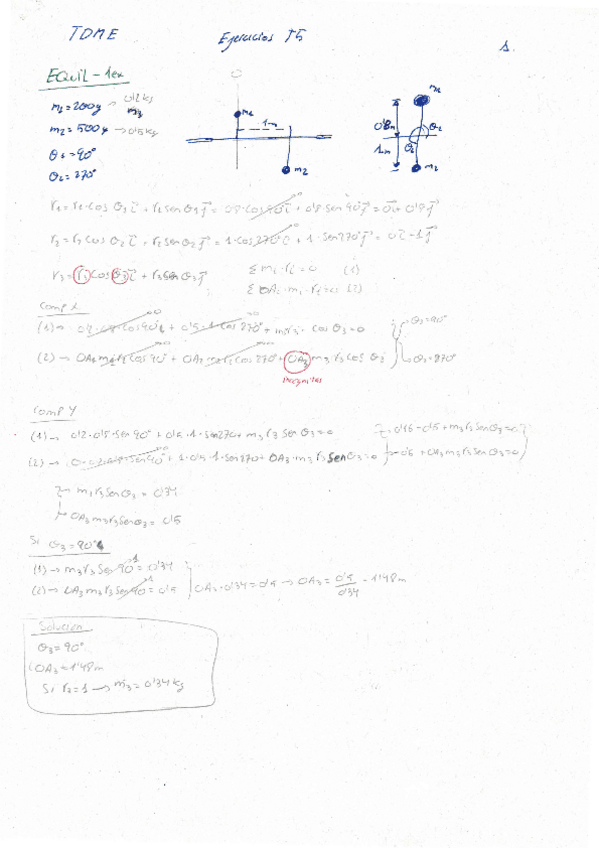 TDME Ejercicios T5 1.
EQUIL-1ex
m₁=200g → 0'2 kg
m₂=500g → 0'5 kg
θ₁=90°
θ₂=270°
m₁
1m
m₂
m₁
0'8m
θ₂
θ₁
1m
m₂
r₁=r₁·cos θ₁ i + r₁ sen θ₁ j = 0'8·cos 90° i + 0'8 sen 90° j = 0i + 0'8 j
r₂=r₂ cos θ₂ i + r₂ sen θ₂ j = 1·cos 270° i + 1·sen 270° j = 0i - 1j
r₃= r₃ cos θ₃ i + r₃ sen θ₃ j Σ mᵢ·rᵢ=0 (1)
Σ OAᵢ·mᵢ·rᵢ=0 (2)
Comp X
(1) → 0'2·0'8·cos 90° + 0'5·1·cos 270° + m₃r₃·cos θ₃=0 θ₃=90°
(2) → OA₁ m₁ r₁ cos 90° + OA₂ m₂ r₂ cos 270° + OA₃ m₃ r₃ cos θ₃ θ₃=270°
Comp Y
(1) → 0'2·0'8·sen 90° + 0'5·1·sen 270 + m₃ r₃ sen θ₃=0 0'16-0'5+m₃r₃ sen θ₃=0
(2) → 0·0'2·0'8·sen 90° + 1·0'5·1·sen 270 + OA₃·m₃ r₃ sen θ₃=0 -0'5+OA₃ m₃ r₃ sen θ₃=0
m₃r₃ sen θ₃ = 0'34
OA₃ m₃ r₃ sen θ₃ = 0'5
Si θ₃=90°
(1) → m₃ r₃ sen 90° = 0'34
(2) → OA₃ m₃ r₃ sen 90 = 0'5 OA₃·0'34=0'5 → OA₃ = 0'5/0'34 = 1'48m
Solución
θ₃=90°
OA₃=1'48m
Si r₃=1 → m₃=0'34 kg